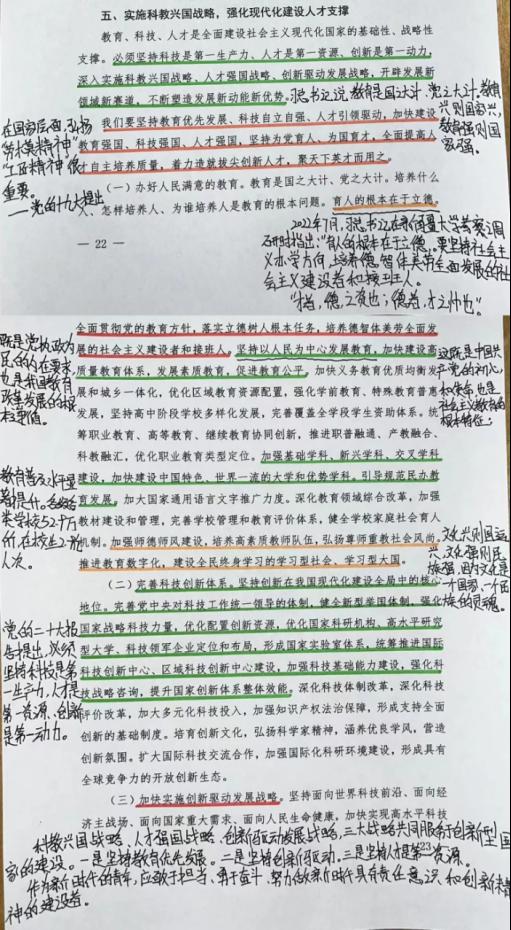 五、实施科教兴国战略，强化现代化建设人才支撑
教育、科技、人才是全面建设社会主义现代化国家的基础性、战略性
支撑。必须坚持科技是第一生产力、人才是第一资源、创新是第一动力，
深入实施科教兴国战略、人才强国战略、创新驱动发展战略，开辟发展新
领域新赛道，不断塑造发展新动能新优势。
总书记说教育是国之大计、党之大计，教育
兴则国家兴，
教育强则国
家强。
我们要坚持教育优先发展、科技自立自强、人才引领驱动，加快建设
教育强国、科技强国、人才强国，坚持为党育人、为国育才，全面提高人
才自主培养质量，着力造就拔尖创新人才，聚天下英才而用之。
在国家层面，弘扬
“劳模精神”
“工匠精神”很
重要。
——党的十九大提出
（一）办好人民满意的教育。教育是国之大计、党之大计。培养什么
人、怎样培养人、为谁培养人是教育的根本问题。育人的根本在于立德。
— 22 —
2022年7月，总书记在新疆大学考察调
研时指出：“育人的根本在于立德，要坚持社会主
义办学方向，培养德智体美劳全面发展的社
会主义建设者和接班人。
“才者，德之资也；德者，才之帅也”。
全面贯彻党的教育方针，落实立德树人根本任务，培养德智体美劳全面发
展的社会主义建设者和接班人。坚持以人民为中心发展教育，加快建设高
质量教育体系，发展素质教育，促进教育公平。加快义务教育优质均衡发
展和城乡一体化，优化区域教育资源配置，强化学前教育、特殊教育普惠
发展，坚持高中阶段学校多样化发展，完善覆盖全学段学生资助体系。统
筹职业教育、高等教育、继续教育协同创新，推进职普融通、产教融合、
科教融汇，优化职业教育类型定位。加强基础学科、新兴学科、交叉学科
建设，加快建设中国特色、世界一流的大学和优势学科。引导规范民办教
育发展。加大国家通用语言文字推广力度。深化教育领域综合改革，加强
教材建设和管理，完善学校管理和教育评价体系，健全学校家庭社会育人
机制。加强师德师风建设，培养高素质教师队伍，弘扬尊师重教社会风尚。
推进教育数字化，建设全民终身学习的学习型社会、学习型大国。
既是党执政为
民的内在要求，
也是我国教育
改革发展的根
本价值。
这既是中国共
产党的初心
和使命，也是
社会主义教育的
根本特征；
教育普及水平显
著提升。
类学校52.9万
所，在校生2.9亿
人次。
文化兴则国运
兴，文化强则民
族强，因为文化是
一个国家、一个民
族的灵魂。
（二）完善科技创新体系。坚持创新在我国现代化建设全局中的核心
地位。完善党中央对科技工作统一领导的体制，健全新型举国体制，强化
国家战略科技力量，优化配置创新资源，优化国家科研机构、高水平研究
型大学、科技领军企业定位和布局，形成国家实验室体系，统筹推进国际
科技创新中心、区域科技创新中心建设，加强科技基础能力建设，强化科
技战略咨询，提升国家创新体系整体效能。深化科技体制改革，深化科技
评价改革，加大多元化科技投入，加强知识产权法治保障，形成支持全面
创新的基础制度。培育创新文化，弘扬科学家精神，涵养优良学风，营造
创新氛围。扩大国际科技交流合作，加强国际化科研环境建设，形成具有
全球竞争力的开放创新生态。
党的二十大报
告提出，必须
坚持科技是第
一生产力，人才是
第一资源，创新
是第一动力。
（三）加快实施创新驱动发展战略。坚持面向世界科技前沿、面向经
济主战场、面向国家重大需求、面向人民生命健康，加快实现高水平科技
23
科教兴国战略、人才强国战略、创新驱动发展战略，三大战略共同服务于创新型国
家的建设。一是坚持教育优先发展。二是坚持创新驱动。三是坚持人才是第一资源。
作为新时代的青年，应敢于担当、勇于奋斗，努力做新时代具有责任意识和创新精
神的建设者。